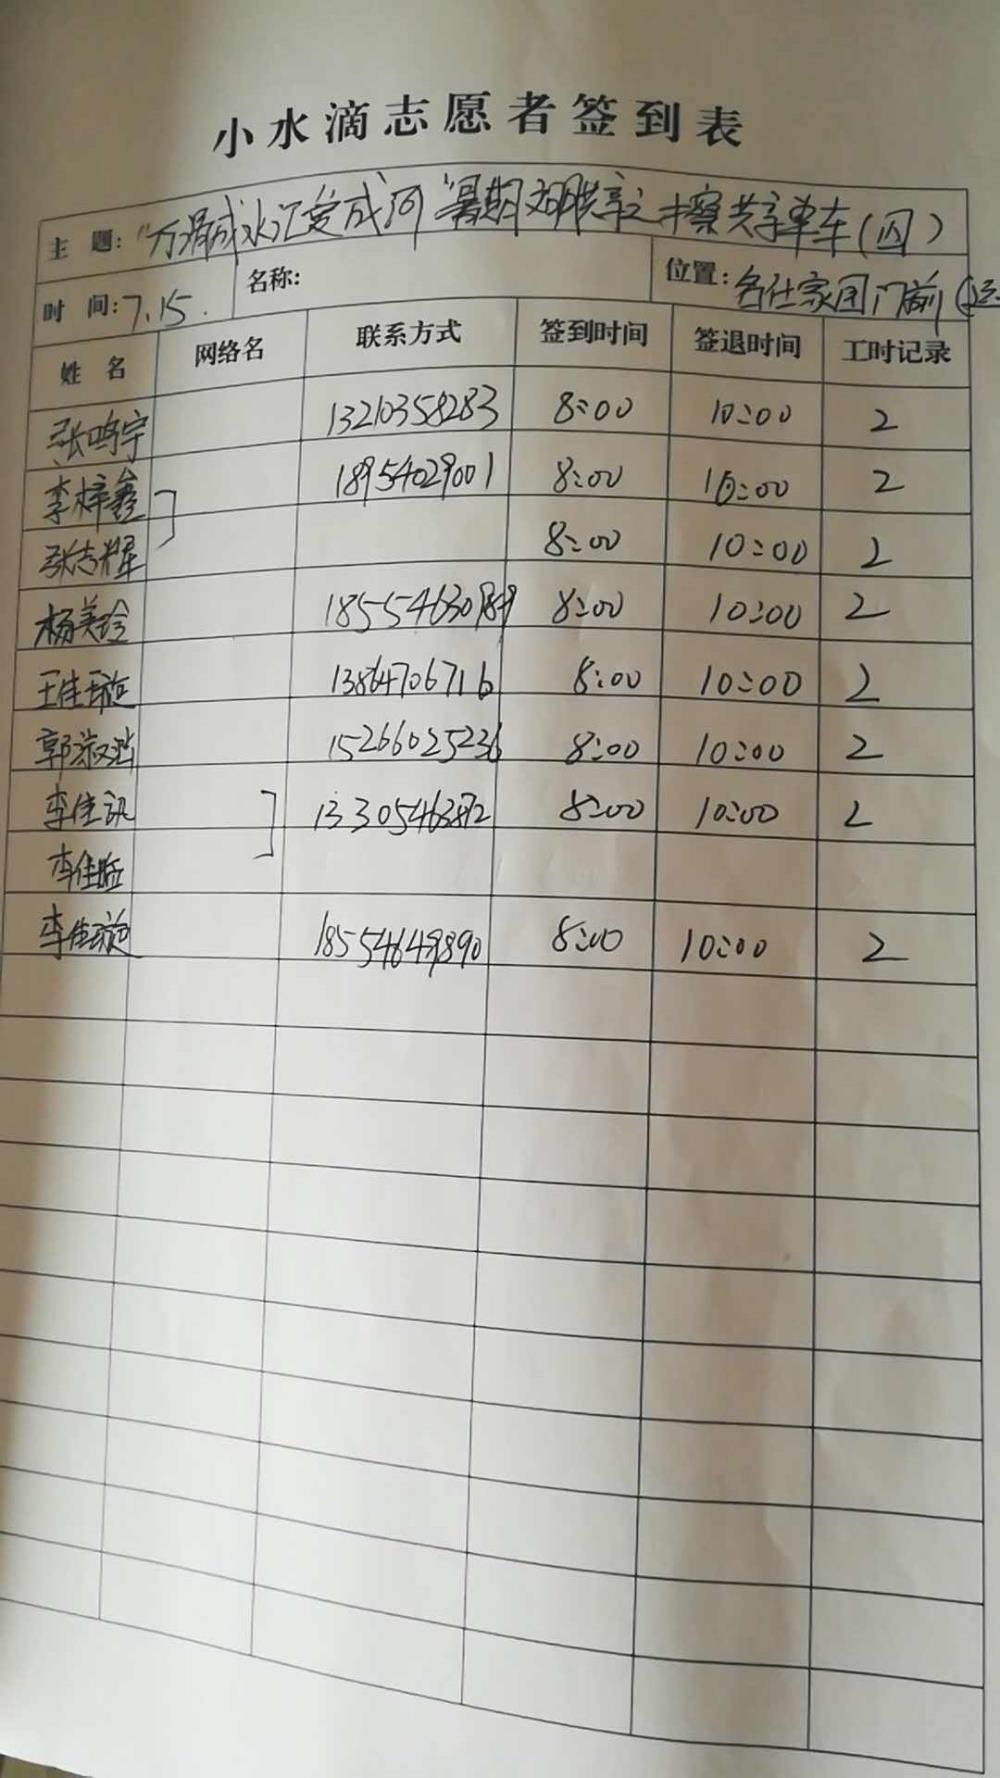 小水滴志愿者签到表
主 题: "万滴成水汇变成河"暑期文明共享之擦共享单车(四)
时 间: 7.15. 名称: 位置: 名仕家园门前
姓 名 网络名 联系方式 签到时间 签退时间 工时记录
张鸣宇 13210358283 8:00 10:00 2
李梓鑫 18954029001 8:00 10:00 2
张志辉 8:00 10:00 2
杨美玲 8:00 10:00 2
王佳璇 13864706716 8:00 10:00 2
郭淑 15266025236 8:00 10:00 2
李佳讯 13305463872 8:00 10:00 2
李佳临
李佳璇 18554649890 8:00 10:00 2